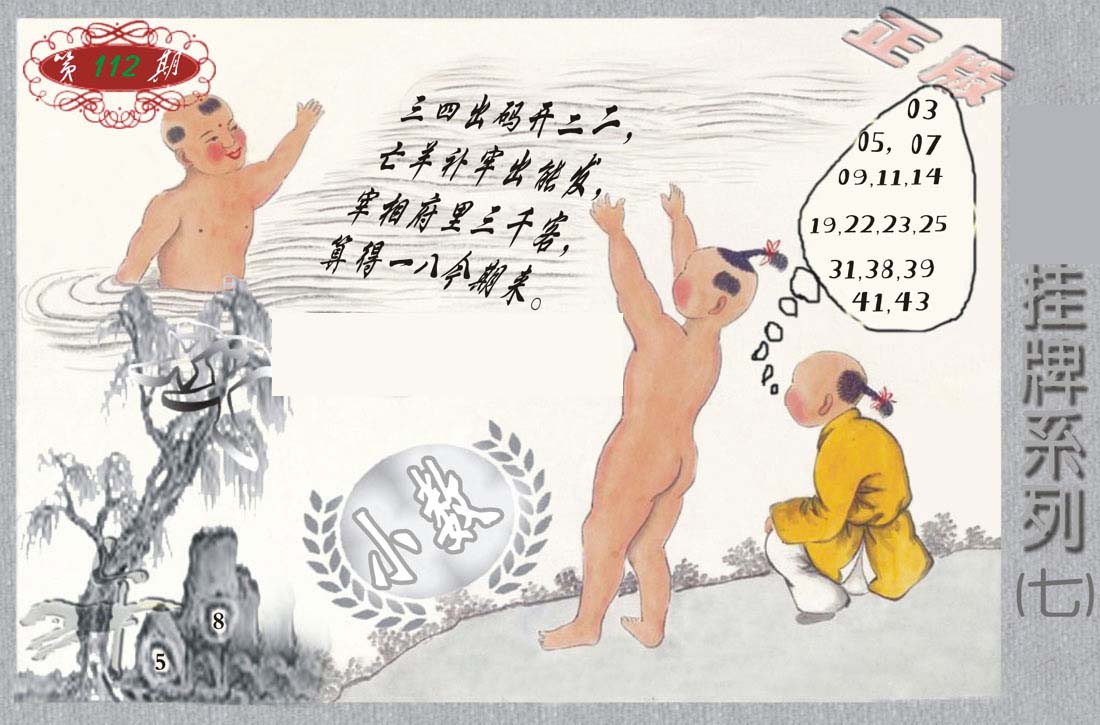 第 112 期
正版
三四出码开二二，
亡羊补牢出能发，
宰相府里三千客，
算得一八今期来。
03
05, 07
09,11,14
19,22,23,25
31,38,39
41,43
挂牌系列(七)
小数
8
5